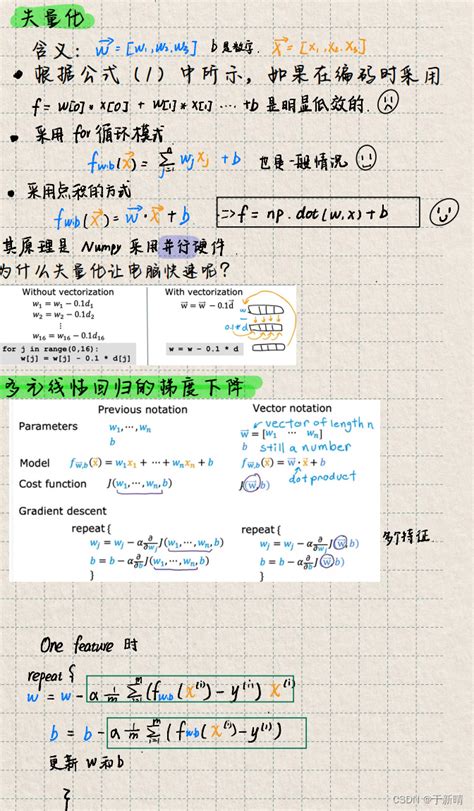 矢量化
含义: w⃗ = [w₁, w₂, w₃] b是数字. x⃗ = [x₁, x₂, x₃]
• 根据公式(1)中所示,如果在编码时采用
f = w[0] * x[0] + w[1] * x[1] ... + b 是明显低效的.
• 采用 for 循环模式
f_wb(x⃗) = Σ_{j=1}^{n} w_j x_j + b 也是一般情况
• 采用点积的方式
f_wb(x⃗) = w⃗ · x⃗ + b => f = np.dot(w, x) + b
其原理是 Numpy 采用并行硬件
为什么矢量化让电脑快速呢?
Without vectorization
w₁ = w₁ − 0.1d₁
w₂ = w₂ − 0.1d₂
⋮
w₁₆ = w₁₆ − 0.1d₁₆
for j in range(0,16):
w[j] = w[j] - 0.1 * d[j]
With vectorization
w⃗ = w⃗ − 0.1d⃗
w = w - 0.1 * d
多元线性回归的梯度下降
Previous notation Vector notation
Parameters w₁, ⋯, wₙ
b
vector of length n
w⃗ = [w₁ ⋯ wₙ]
b still a number
Model f_w⃗,b(x⃗) = w₁x₁ + ⋯ + wₙxₙ + b f_w⃗,b(x⃗) = w⃗ · x⃗ + b
dot product
Cost function J(w₁, ⋯, wₙ, b) J(w⃗, b)
Gradient descent
repeat {
w_j = w_j − α ∂/∂w_j J(w₁, ⋯, wₙ, b)
b = b − α ∂/∂b J(w₁, ⋯, wₙ, b)
}
repeat {
w_j = w_j − α ∂/∂w_j J(w⃗, b)
b = b − α ∂/∂b J(w⃗, b)
}
多个特征
One feature 时
repeat {
w = w - α 1/m Σ_{i=1}^{m} (f_wb(x⁽ⁱ⁾) − y⁽ⁱ⁾) x⁽ⁱ⁾
b = b − α 1/m Σ_{i=1}^{m} (f_wb(x⁽ⁱ⁾) − y⁽ⁱ⁾)
更新 w和b
}
CSDN @于新晴